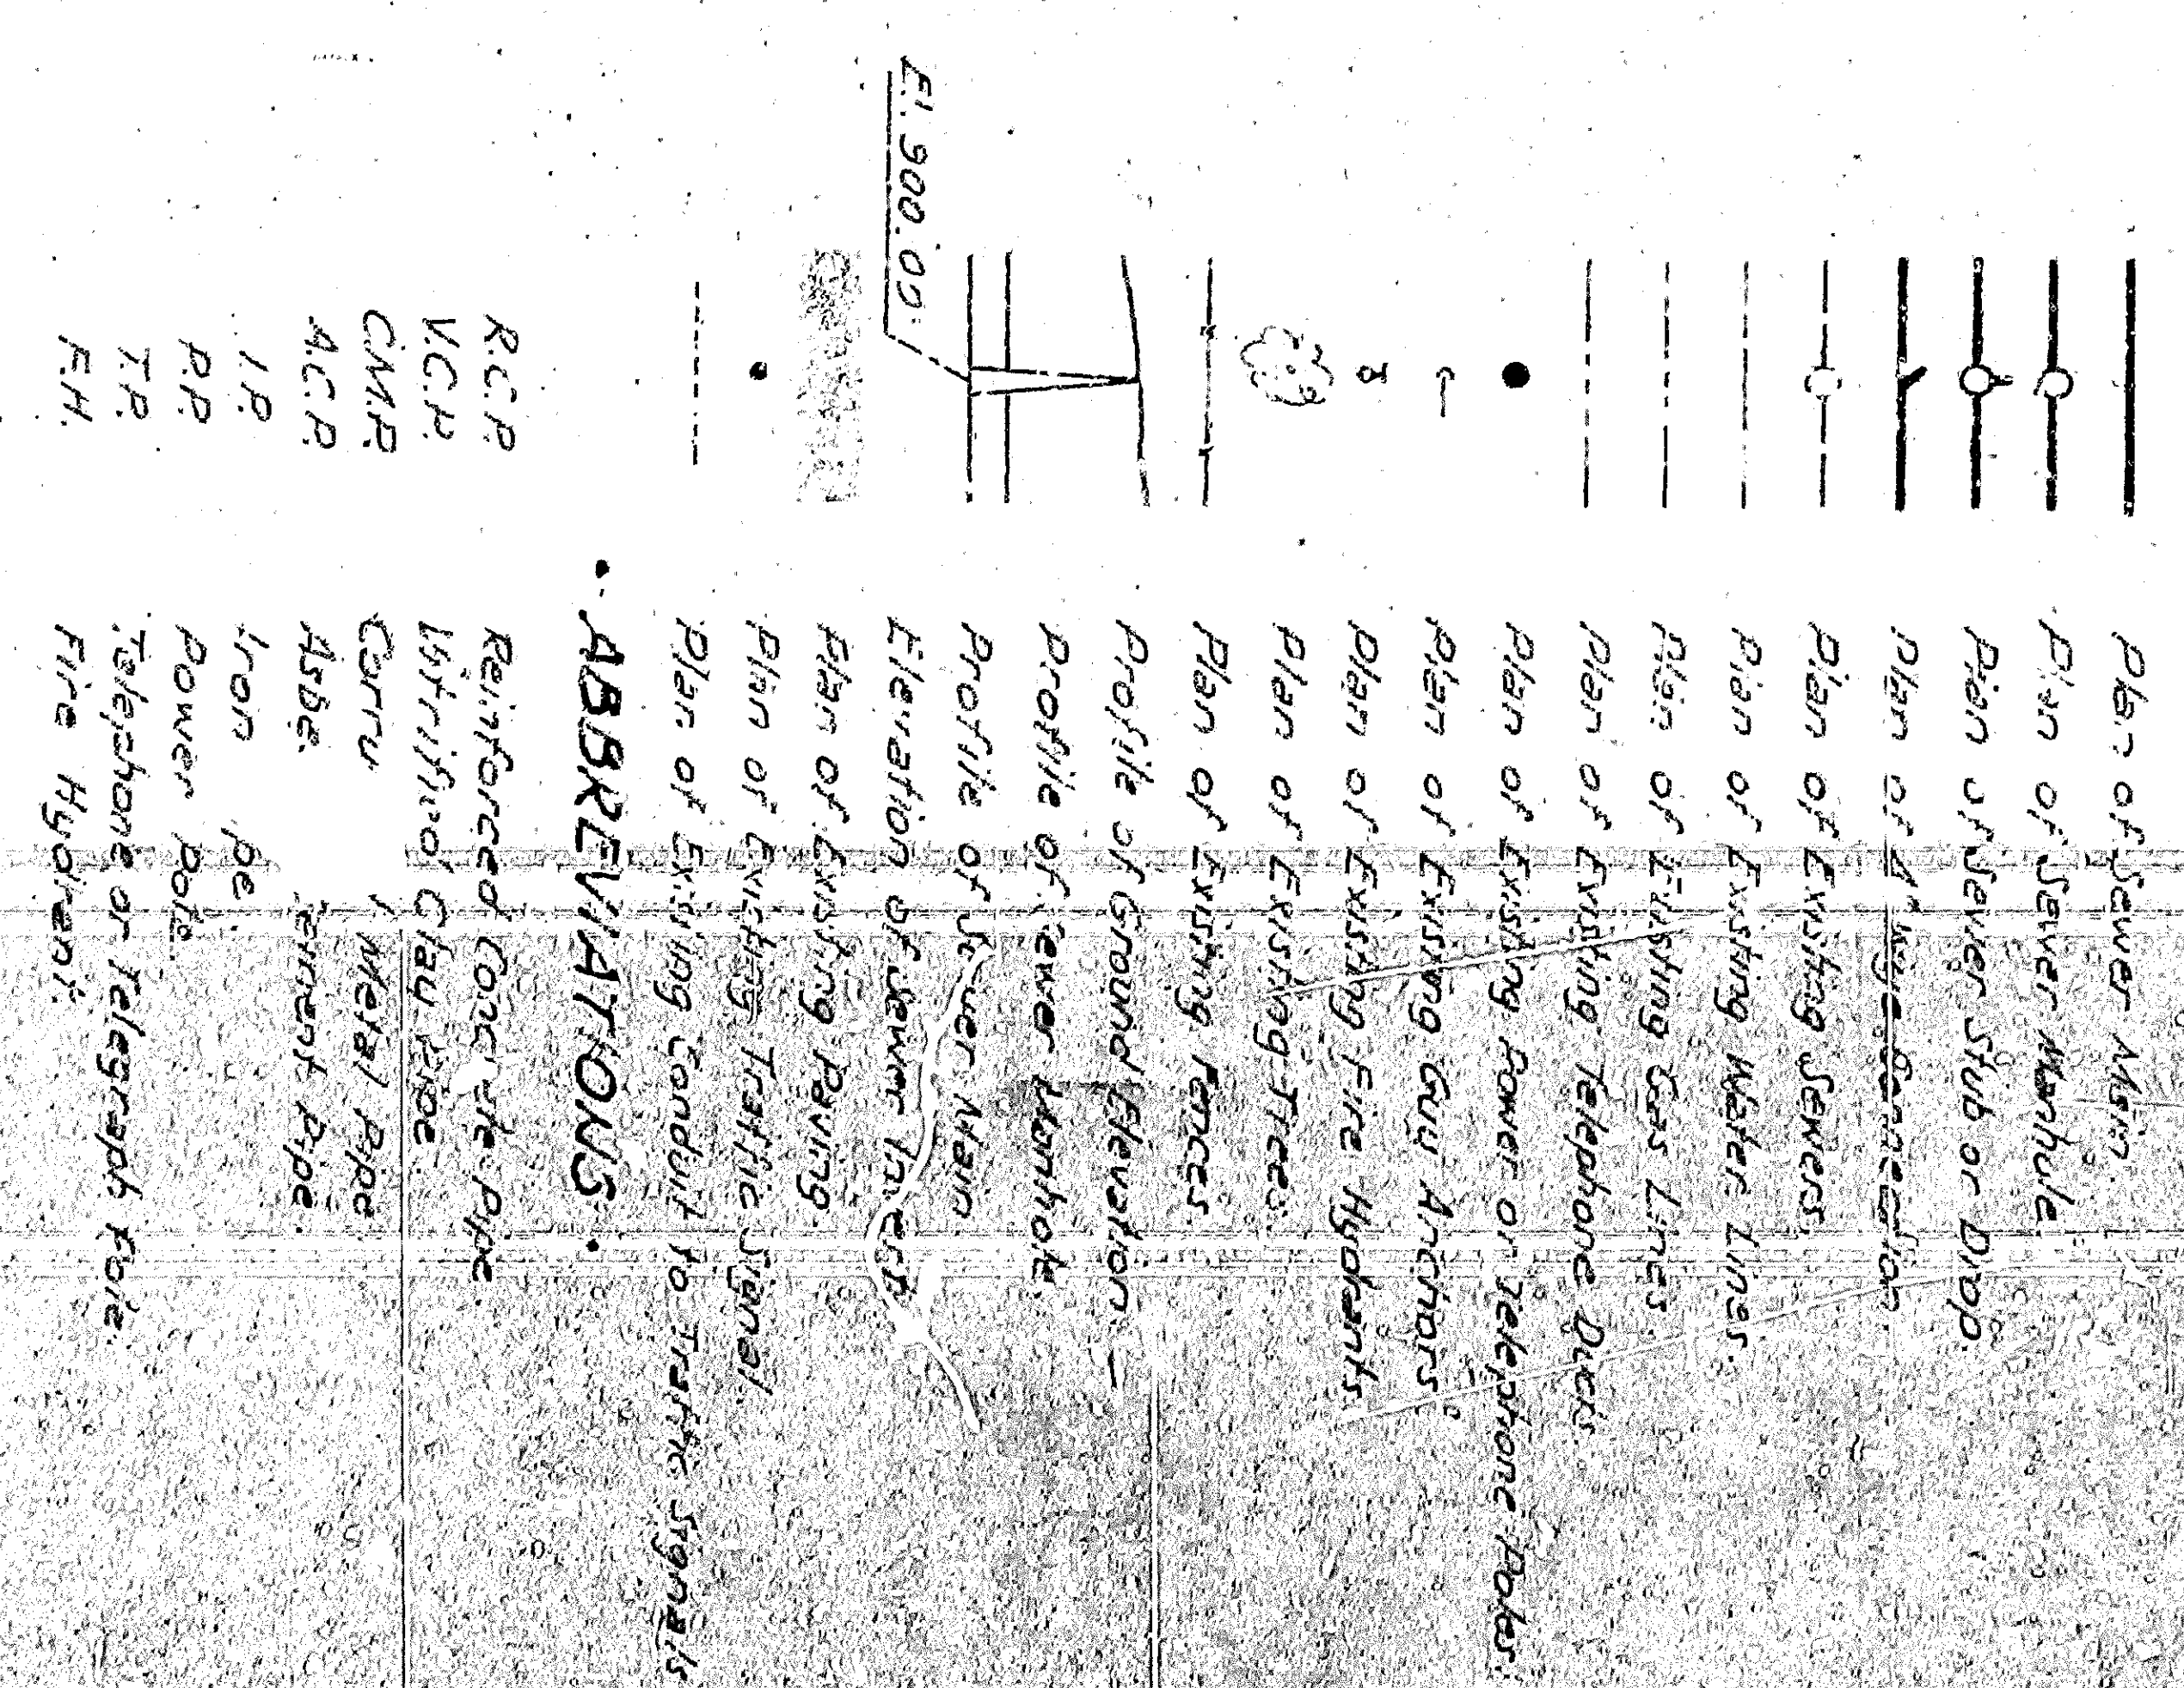 Plan of Sewer Main.
Plan of Sewer Manhole.
Plan of Sewer Stub or Drop.
Plan of Wye Connection
Plan of Existing Sewers.
Plan of Existing Water Lines.
Plan of Existing Gas Lines
Plan of Existing Telephone Ducts.
Plan of Existing Power or Telephone Poles.
Plan of Existing Guy Anchors
Plan of Existing Fire Hydrants.
Plan of Existing Trees.
Plan of Existing Fences.
Profile of Ground Elevation
Profile of Sewer Manhole.
Profile of Sewer Main
El. 900.00 Elevation of Sewer Invert.
Plan of Existing Paving.
Plan of Existing Traffic Signal.
Plan of Existing Conduit to Traffic Signals
• ABBREVIATIONS •
R.C.P. Reinforced Concrete Pipe.
V.C.P. Vitrified Clay Pipe
C.M.P. Corru Metal Pipe
A.C.P. Asbe. Cement Pipe.
I.P. Iron pe.
P.P. Power Pole.
T.P. Telephone or Telegraph Pole.
F.H. Fire Hydrent.